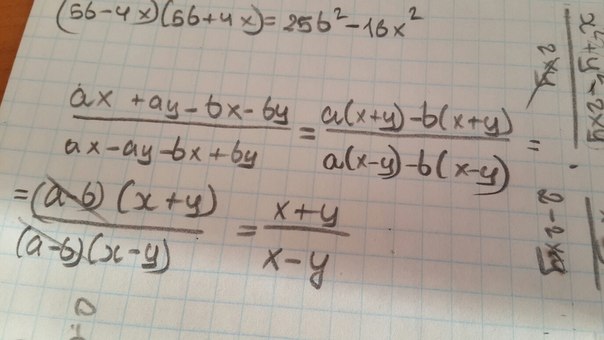 (5b-4x)(5b+4x)=25b²-16x²
ax+ay-bx-by / ax-ay-bx+by = a(x+y)-b(x+y) / a(x-y)-b(x-y) =
= (a-b)(x+y) / (a-b)(x-y) = x+y / x-y